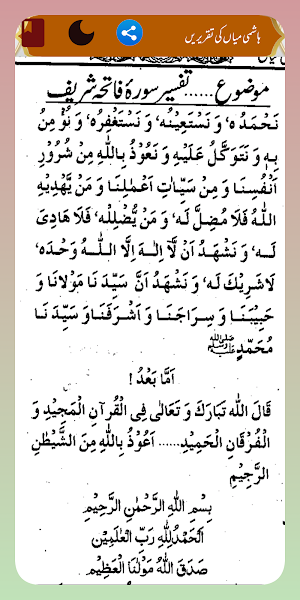 ہاشمی میاں کی تقریریں
موضوع ...... تفسیر سورۂ فاتحہ شریف
نَحْمَدُہٗ وَ نَسْتَعِیْنُہٗ وَ نَسْتَغْفِرُہٗ وَ نُؤْمِنُ
بِہٖ وَ نَتَوَکَّلُ عَلَیْہِ وَ نَعُوْذُ بِاللّٰہِ مِنْ شُرُوْرِ
اَنْفُسِنَا وَ مِنْ سَیِّاٰتِ اَعْمٰلِنَا وَ مَنْ یَّھْدِیْہِ
اللّٰہُ فَلَا مُضِلَّ لَہٗ وَ مَنْ یُّضْلِلْہٗ فَلَا ھَادِیَ
لَہٗ وَ نَشْھَدُ اَنْ لَّآ اِلٰہَ اِلَّا اللّٰہُ وَحْدَہٗ
لَاشَرِیْكَ لَہٗ وَ نَشْھَدُ اَنَّ سَیِّدَ نَا مَوْلَانَا وَ
حَبِیْبَنَا وَ سِرَاجَنَا وَ اَشْرَفَنَا وَ سَیِّدَ نَا
مُحَمَّدٍ ﷺ
اَمَّا بَعْدُ !
قَالَ اللّٰہُ تَبَارَكَ وَ تَعَالٰی فِی الْقُرآنِ الْمَجِیْدِ وَ
الْفُرْقَانِ الْحَمِیْدِ ...... اَعُوْذُ بِاللّٰہِ مِنَ الشَّیْطٰنِ
الرَّجِیْمِ
بِسْمِ اللّٰہِ الرَّحْمٰنِ الرَّحِیْمِ
اَلْحَمْدُ لِلّٰہِ رَبِّ الْعٰلَمِیْنَ
صَدَقَ اللّٰہُ مَوْلٰنَا الْعَظِیْمُ